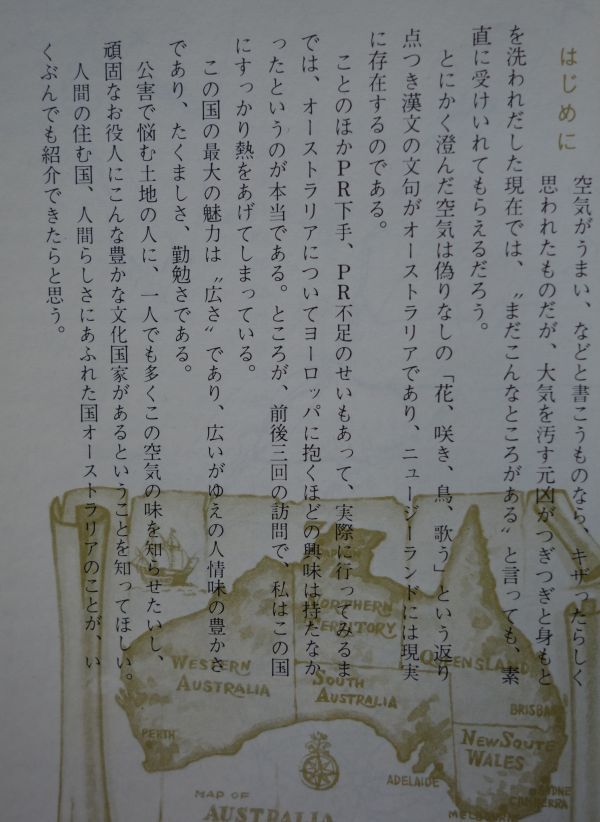 はじめに
空気がうまい、などと書こうものなら、キザったらしく
思われたものだが、大気を汚す元凶がつぎつぎと身もと
を洗われだした現在では、〝まだこんなところがある〟と言っても、素
直に受けいれてもらえるだろう。
とにかく澄んだ空気は偽りなしの「花、咲き、鳥、歌う」という返り
点つき漢文の文句がオーストラリアであり、ニュージーランドには現実
に存在するのである。
ことのほかＰＲ下手、ＰＲ不足のせいもあって、実際に行ってみるま
では、オーストラリアについてヨーロッパに抱くほどの興味は持たなか
ったというのが本当である。ところが、前後三回の訪問で、私はこの国
にすっかり熱をあげてしまっている。
この国の最大の魅力は〝広さ〟であり、広いがゆえの人情味の豊かさ
であり、たくましさ、勤勉さである。
公害で悩む土地の人に、一人でも多くこの空気の味を知らせたいし、
頑固なお役人にこんな豊かな文化国家があるということを知ってほしい。
人間の住む国、人間らしさにあふれた国オーストラリアのことが、い
くぶんでも紹介できたらと思う。
NORTHERN
TERRITORY
QUEENSLAND
WESTERN
AUSTRALIA
SOUTH
AUSTRALIA
BRISBANE
PERTH
NEW SOUTE
WALES
ADELAIDE
SYDNE
CAMBERRA
MELBOURN
MAP OF
AUSTRALIA